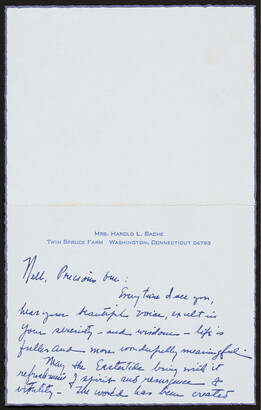 Mrs. Harold L. Bache
Twin Spruce Farm Washington, Connecticut 06793
Nell, Precious One:
Every time I see you,
hear your beautiful voice, exult in
your serenity - and wisdom - life is
fuller and more wonderfully meaningful.
May the Eastertide bring with it
refreshment of spirit and resurgence of
vitality - The world has been created